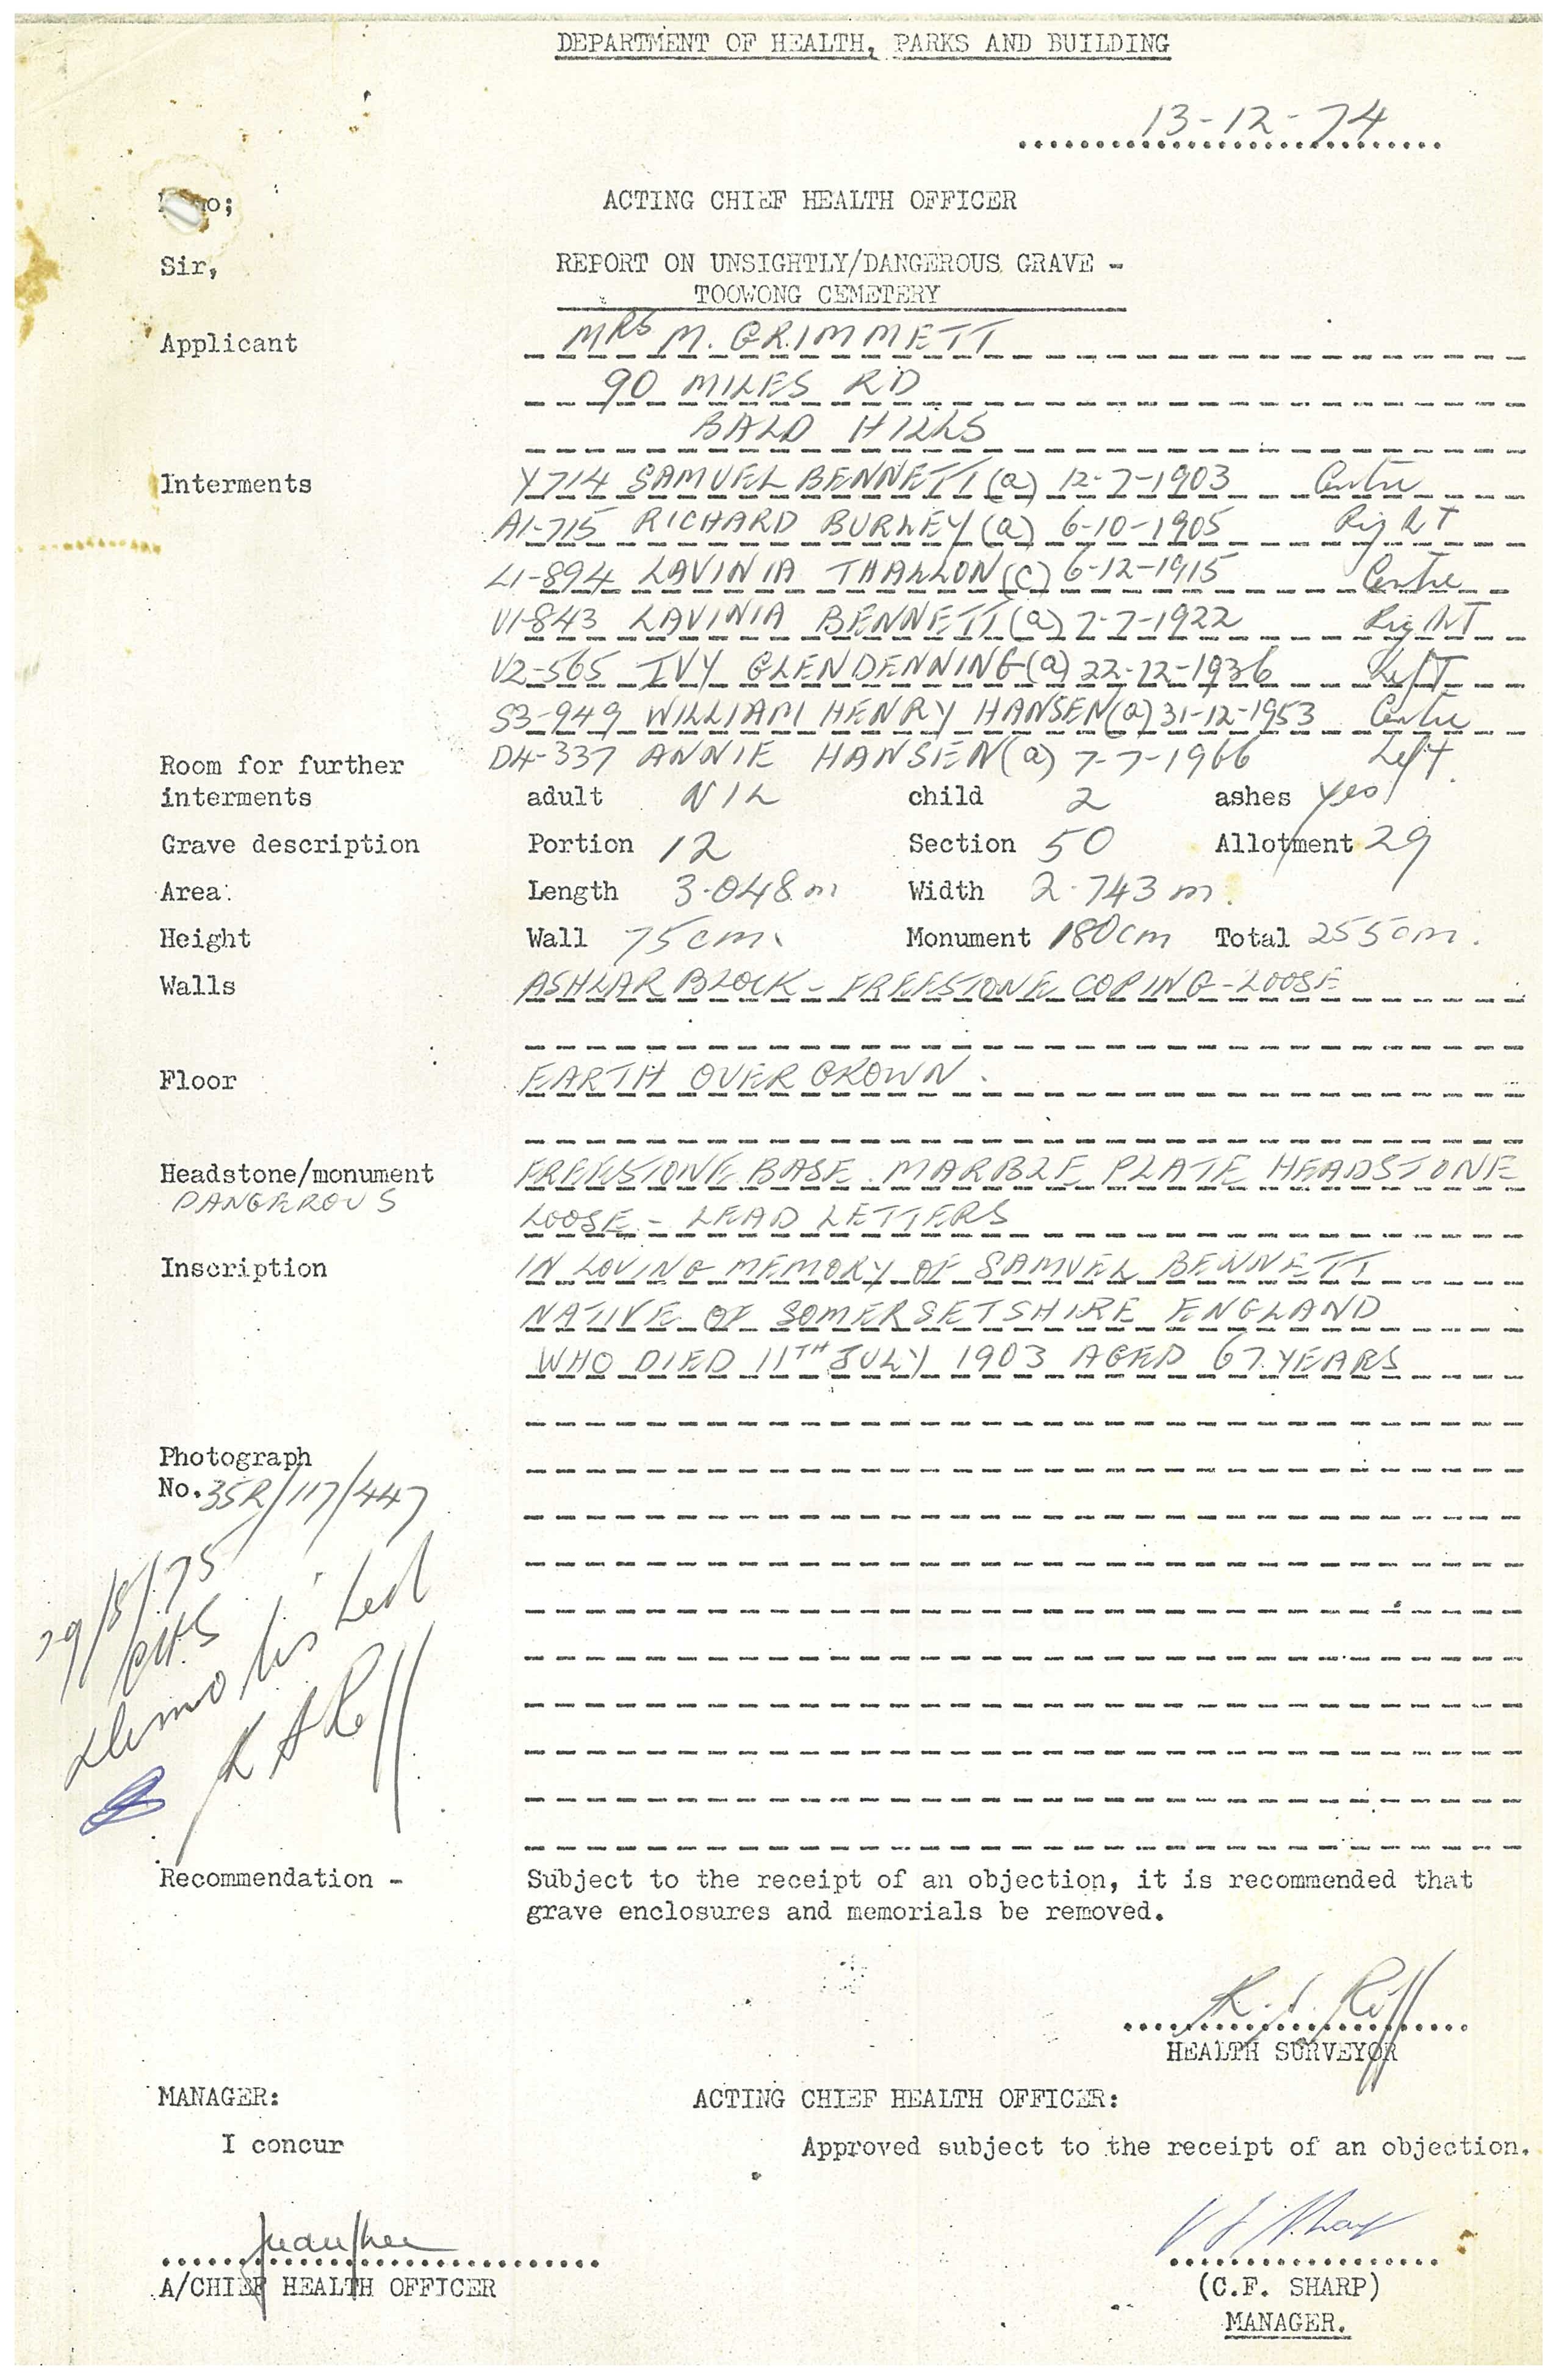 DEPARTMENT OF HEALTH, PARKS AND BUILDING
13-12-74
ACTING CHIEF HEALTH OFFICER
Sir,
REPORT ON UNSIGHTLY/DANGEROUS GRAVE -
TOOWONG CEMETERY
Applicant MRS M. GRIMMETT
90 MILES RD
BALD HILLS
Interments Y714 SAMUEL BENNETT (a) 12-7-1903 Centre
A1-715 RICHARD BURLEY (a) 6-10-1905 Right
L1-894 LAVINIA THALLON (c) 6-12-1915 Centre
V1-843 LAVINIA BENNETT (a) 7-7-1922 Right
V2-565 IVY GLENDENNING (a) 22-12-1936 Left
S3-949 WILLIAM HENRY HANSEN (a) 31-12-1953 Centre
Room for further D4-337 ANNIE HANSEN (a) 7-7-1966 Left
interments adult NIL child 2 ashes yes
Grave description Portion 12 Section 50 Allotment 29
Area: Length 3.048 m Width 2.743 m.
Height Wall 75 cm. Monument 180cm Total 255cm.
Walls ASHLAR BLOCK - FREESTONE COPING - LOOSE
Floor EARTH OVERGROWN.
Headstone/monument FREESTONE BASE. MARBLE PLATE HEADSTONE
DANGEROUS LOOSE - LEAD LETTERS
Inscription IN LOVING MEMORY OF SAMUEL BENNETT
NATIVE OF SOMERSETSHIRE ENGLAND
WHO DIED 11TH JULY 1903 AGED 67 YEARS
Photograph
No. 35R/117/447
29/8/75
demolished
Recommendation - Subject to the receipt of an objection, it is recommended that
grave enclosures and memorials be removed.
HEALTH SURVEYOR
MANAGER: ACTING CHIEF HEALTH OFFICER:
I concur Approved subject to the receipt of an objection.
A/CHIEF HEALTH OFFICER (C.F. SHARP)
MANAGER.